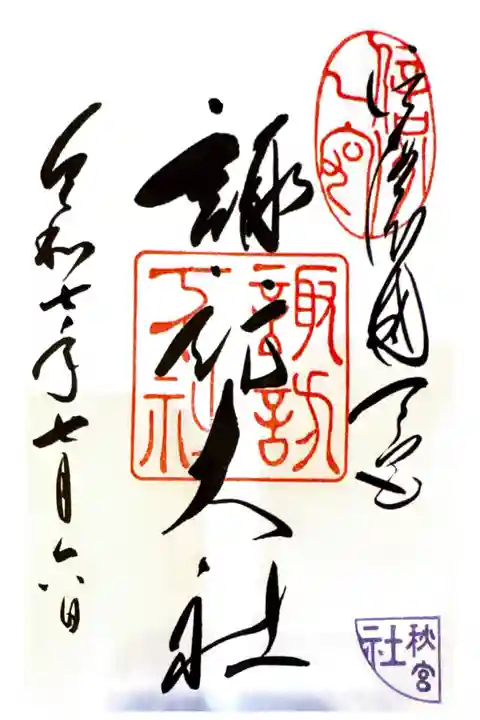 信濃国一之宮
信州一宮
諏訪大社
諏訪大社
令和七年七月六日
秋宮
社